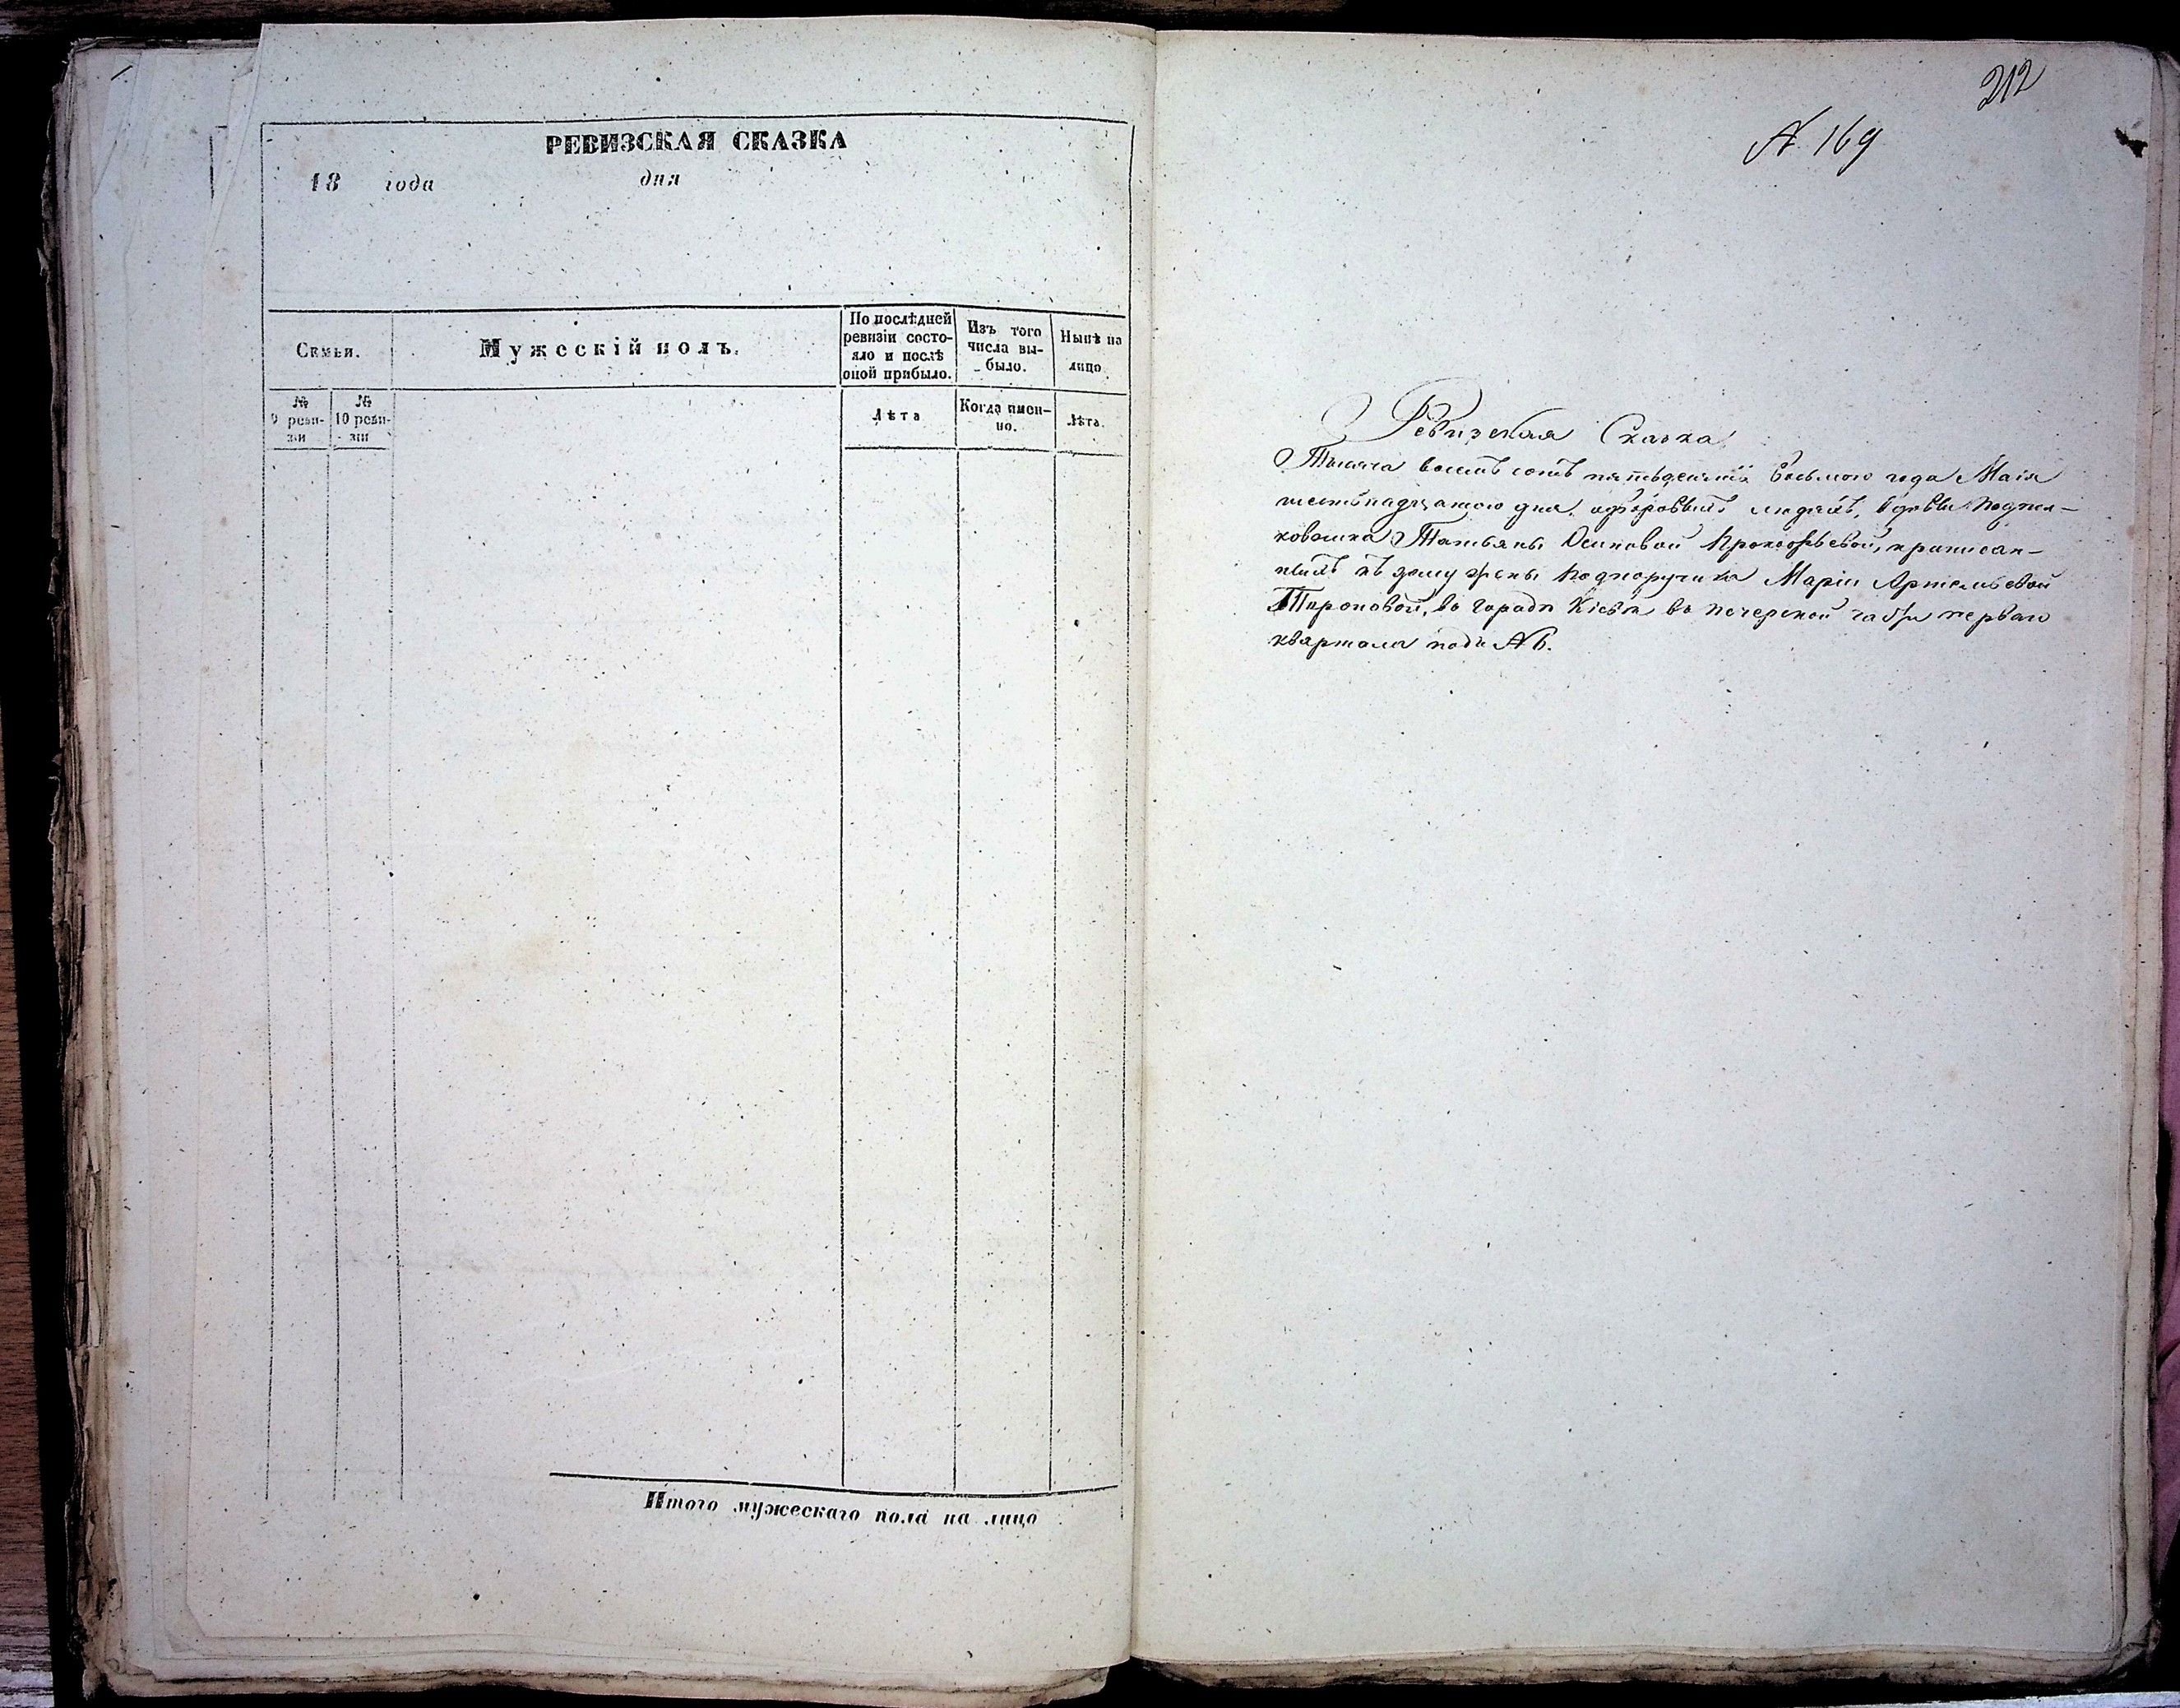 РЕВИЗСКАЯ СКАЗКА
18 года дня
Семьи.
Мужескій полъ.
По послѣдней
ревизіи состо-
яло и послѣ
оной прибыло.
Изъ того
числа вы-
было.
Нынѣ на
лицо
№
9 реви-
зіи
№
10 реви-
зіи
Лѣта
Когда имен-
но.
Лѣта.
Итого мужескаго пола на лицо
212
№ 169
Ревизская Сказка
Тысяча восемь сотъ пятьдесятъ восьмого года Маія
шестьнадцатого дня, о дворовыхъ людяхъ, вдовы подпол-
ковника Татьяны Осиповой Прокофьевой, приписан-
ныхъ къ дому жены подпоручика Маріи Артемьевой
Тироповой, во городѣ Кіевѣ во печерской части первого
квартала подъ № 6.